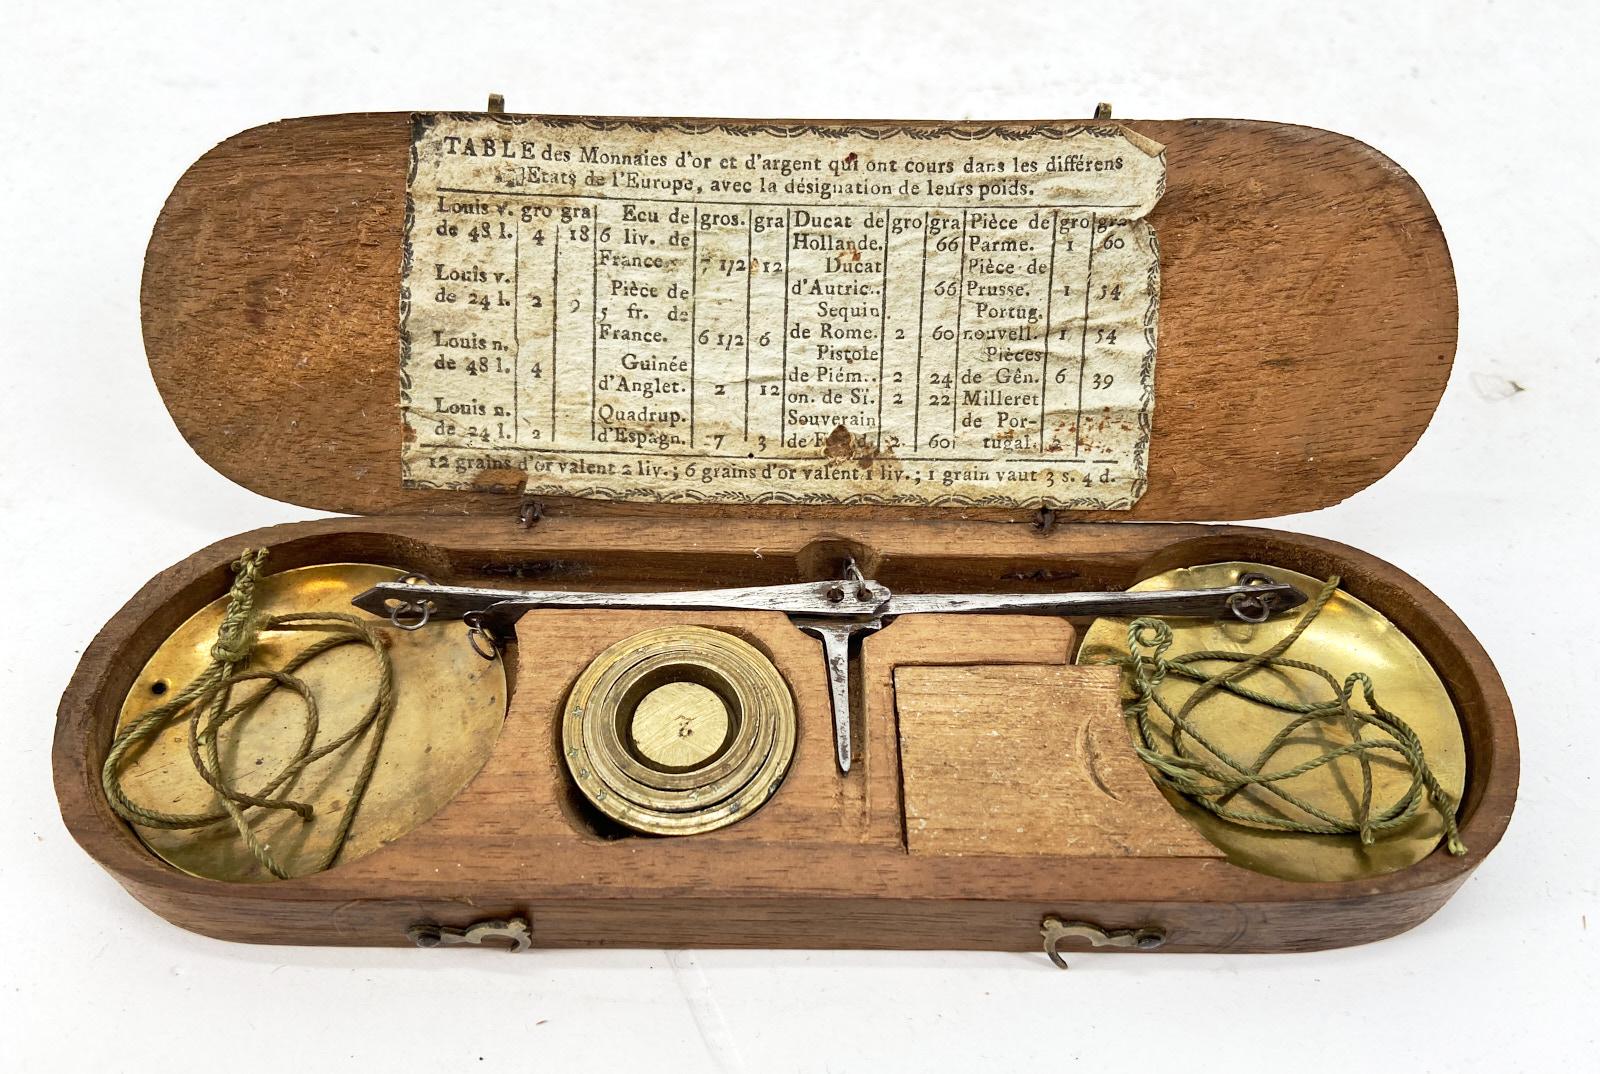 TABLE des Monnaies d'or et d'argent qui ont cours dans les différens
Etats de l'Europe, avec la désignation de leurs poids.
Louis v. gro gra
de 48 l. 4 18
Louis v.
de 24 l. 2 9
Louis n.
de 48 l. 4
Louis n.
de 24 l. 2
Ecu de gros. gra
6 liv. de
France 7 1/2 12
Pièce de
5 fr. de
France. 6 1/2 6
Guinée
d'Anglet. 2 12
Quadrup.
d'Espagn. 7 3
Ducat de gro gra
Hollande. 66
Ducat
d'Autric.. 66
Sequin
de Rome. 2 60
Pistole
de Piém.. 2 24
on. de Si. 2 22
Souverain
de 2 60
Pièce de gro gra
Parme. 1 60
Pièce de
Prusse. 1 54
Portug.
nouvell. 1 54
Pièces
de Gên. 6 39
Milleret
de Por-
tugal. 2
12 grains d'or valent 2 liv.; 6 grains d'or valent 1 liv.; 1 grain vaut 3 s. 4 d.